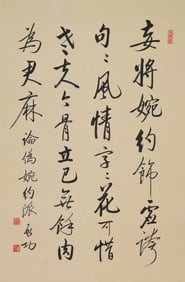 妄將婉約飾虛誇
句〻風情字〻花可惜
老夫今骨立已無餘肉
為君麻 論偽婉約派 啟功